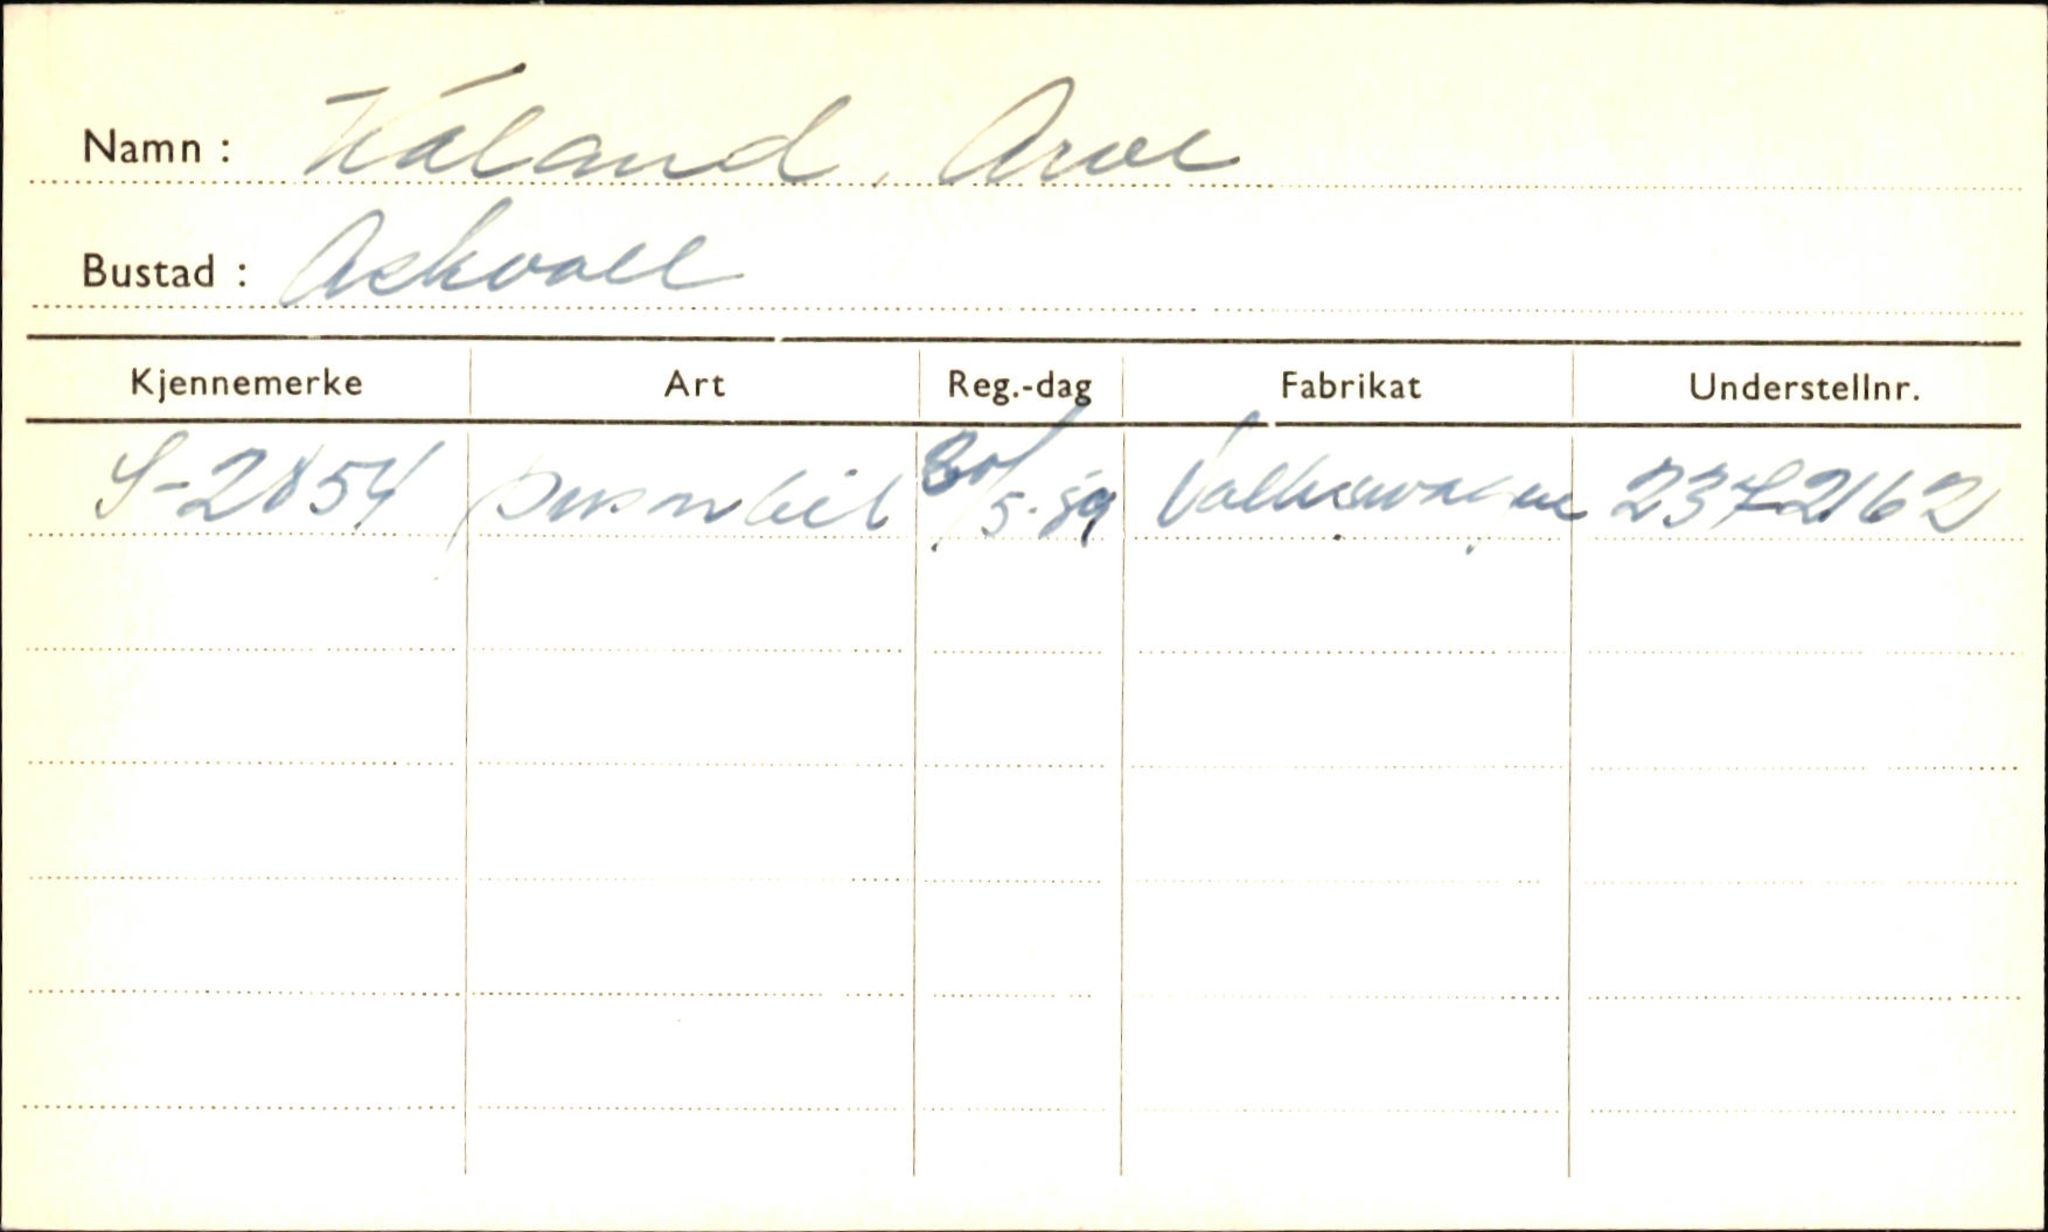 Namn : Kåland, Arve
Bustad : Askvoll
Kjennemerke Art Reg.-dag Fabrikat Understellnr.
S-2854 personbil 30/5-59 Volkswagen 2372162